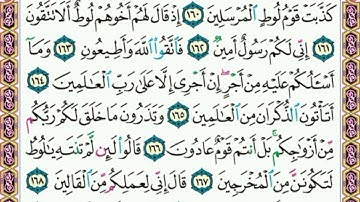 كَذَّبَتْ قَوْمُ لُوطٍ الْمُرْسَلِينَ ١٦٠ إِذْ قَالَ لَهُمْ أَخُوهُمْ لُوطٌ أَلَا تَتَّقُونَ
١٦١ إِنِّي لَكُمْ رَسُولٌ أَمِينٌ ١٦٢ فَاتَّقُوا اللَّهَ وَأَطِيعُونِ ١٦٣ وَمَا
أَسْأَلُكُمْ عَلَيْهِ مِنْ أَجْرٍ إِنْ أَجْرِيَ إِلَّا عَلَىٰ رَبِّ الْعَالَمِينَ ١٦٤
أَتَأْتُونَ الذُّكْرَانَ مِنَ الْعَالَمِينَ ١٦٥ وَتَذَرُونَ مَا خَلَقَ لَكُمْ رَبُّكُم
مِّنْ أَزْوَاجِكُم ۚ بَلْ أَنتُمْ قَوْمٌ عَادُونَ ١٦٦ قَالُوا لَئِن لَّمْ تَنتَهِ يَا لُوطُ
لَتَكُونَنَّ مِنَ الْمُخْرَجِينَ ١٦٧ قَالَ إِنِّي لِعَمَلِكُم مِّنَ الْقَالِينَ ١٦٨